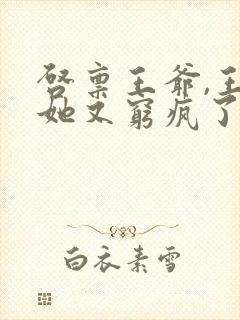 启禀王爷,王
她又窮疯了
白衣素雪